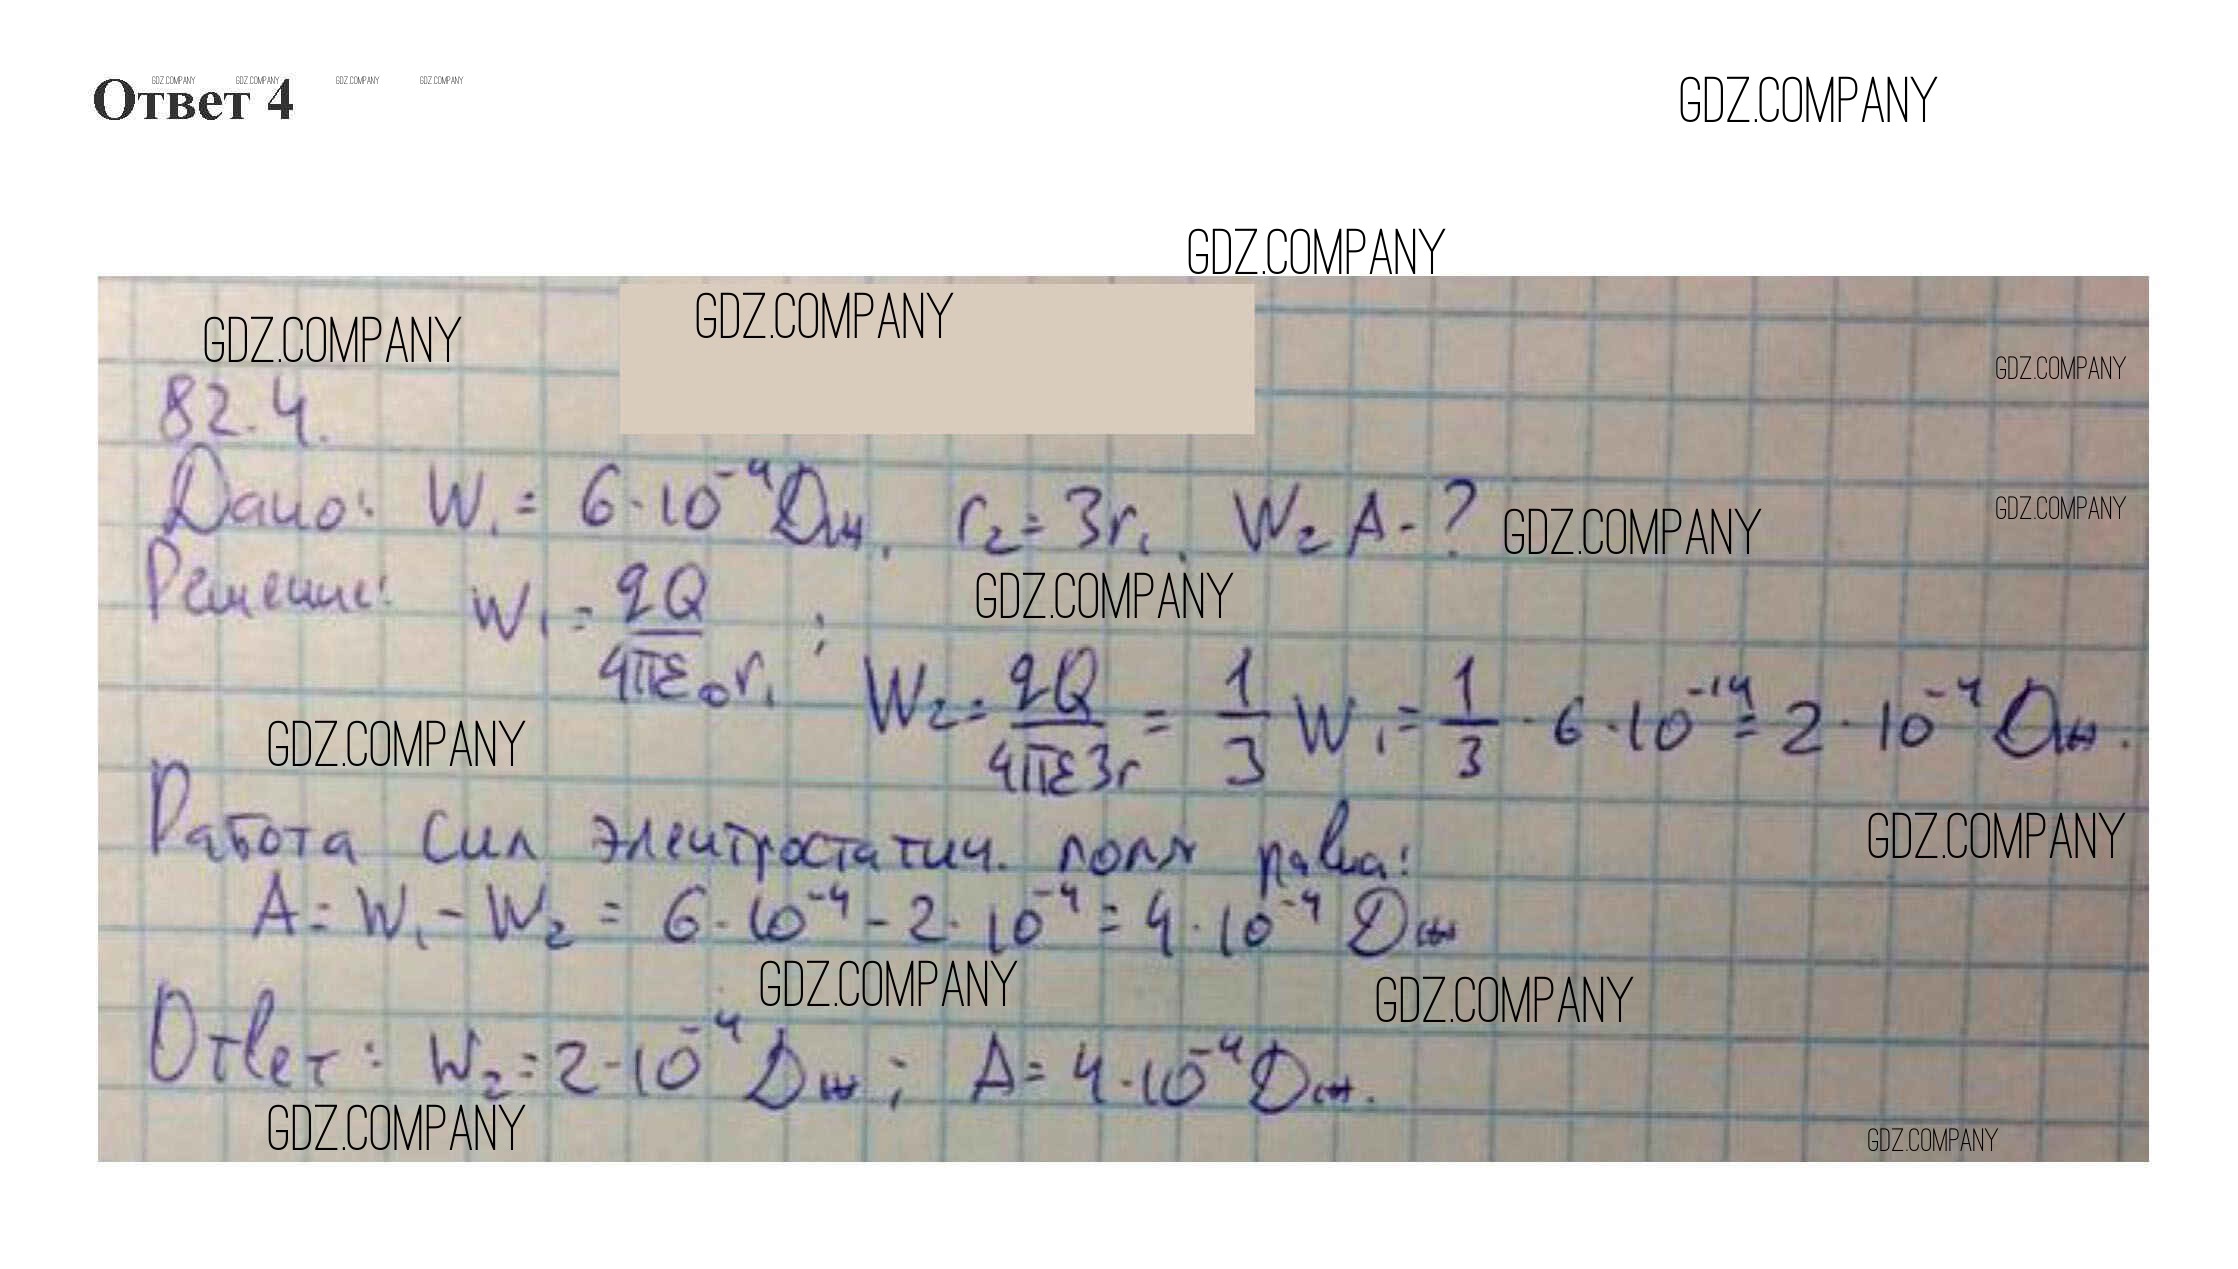 GDZ.COMPANY GDZ.COMPANY GDZ.COMPANY GDZ.COMPANY
Ответ 4
GDZ.COMPANY
GDZ.COMPANY
GDZ.COMPANY
GDZ.COMPANY
GDZ.COMPANY
82.4.
Дано: W₁ = 6·10⁻⁴ Дж, r₂ = 3r₁. W₂ A - ?
GDZ.COMPANY
GDZ.COMPANY
Решение: W₁ = qQ/4πε₀r₁ ;
GDZ.COMPANY
W₂ = qQ/4πε3r = 1/3 W₁ = 1/3 · 6·10⁻¹⁴ = 2·10⁻⁴ Дж.
GDZ.COMPANY
Работа сил электростатич. поля равна:
GDZ.COMPANY
A = W₁ - W₂ = 6·10⁻⁴ - 2·10⁻⁴ = 4·10⁻⁴ Дж
GDZ.COMPANY
GDZ.COMPANY
Ответ: W₂ = 2·10⁻⁴ Дж; A = 4·10⁻⁴ Дж.
GDZ.COMPANY
GDZ.COMPANY